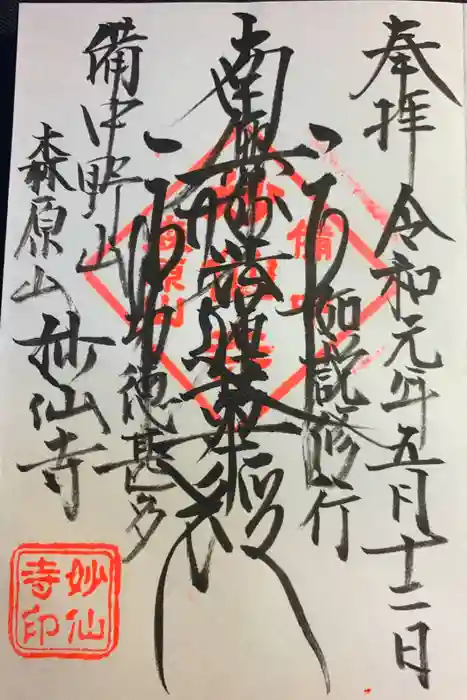 奉拝 令和元年五月十二日
如説修行
南無妙法蓮華経
功徳甚多
備中野山
森原山 妙仙寺
備中
森原山
妙仙
寺印